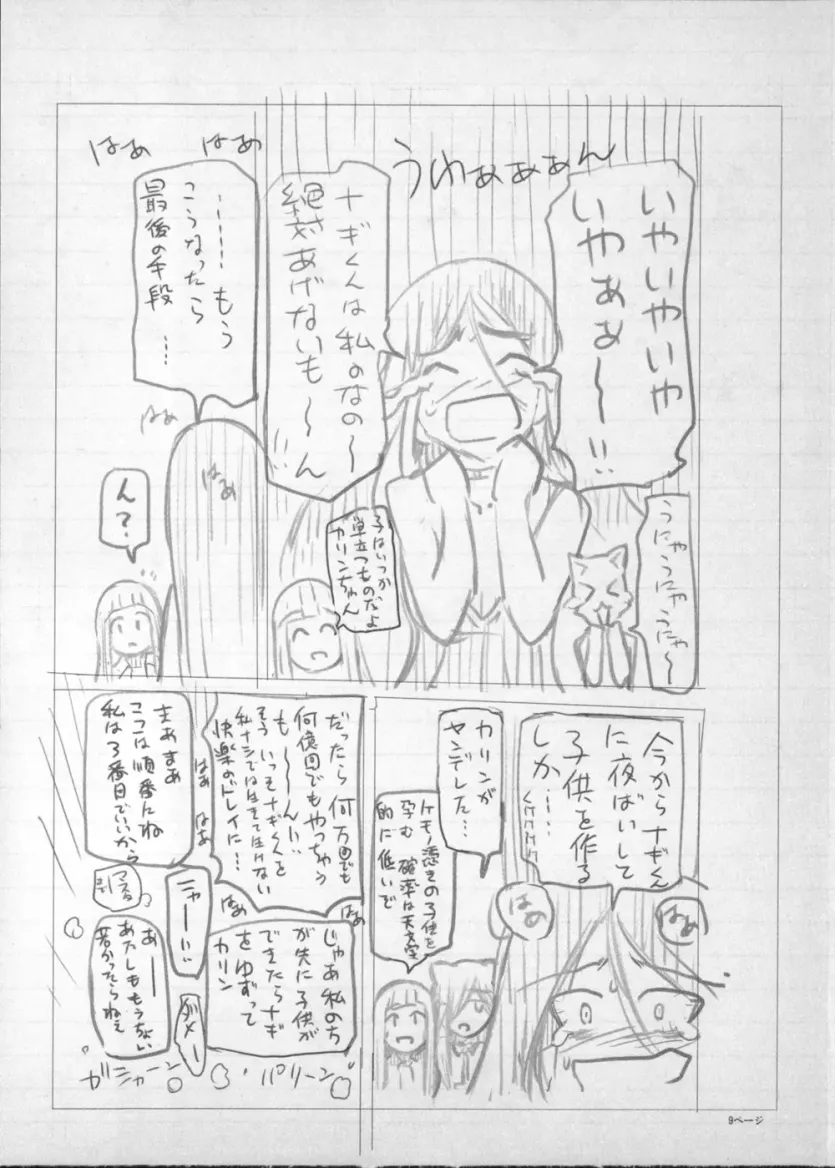 いやいやいや
いやぁぁ〜!!
うわぁぁぁん
うにゃうにゃうにゃ〜
ナギくんは私のなの〜
絶対あげないも〜〜ん
!!
子はいつか
巣立つものだよ
カリンちゃん
はぁ
はぁ
……もう
こうなったら
最後の手段
…
はぁ
はぁ
ん?
今からナギくん
に夜ばいして
子供を作る
しか……
くけけけけ
カリンが
ヤンデレした…
ケモノ憑きの子供を
孕む確率は天文学
的に低いで
はぁ
はぁ
だったら何万回でも
何億回でもやっちゃう
も〜〜ん!!
そういっそナギくんを
私ナシでは生きて生けない
快楽のドレイに…
はぁ
はぁ
はぁ
はぁ
まぁまぁ
ここは順番にね
私は3番目でいいから
じゃあ私のち
が先に子供が
できたらナギ
をゆずって
カリン
ニャー!!
ダメー
あー
あたしももうちょい
若かったらねぇ
パリーン
ガシャーン
9ページ